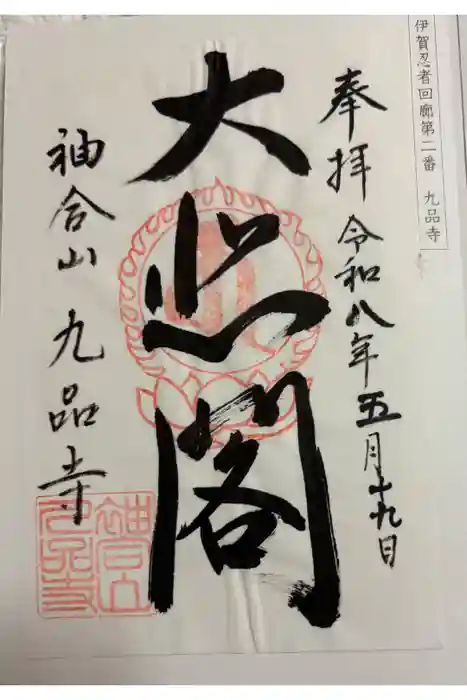 伊賀忍者回廊第二番 九品寺
奉拝 令和八年五月十九日
大悲閣
袖合山 九品寺
袖合山
九品寺